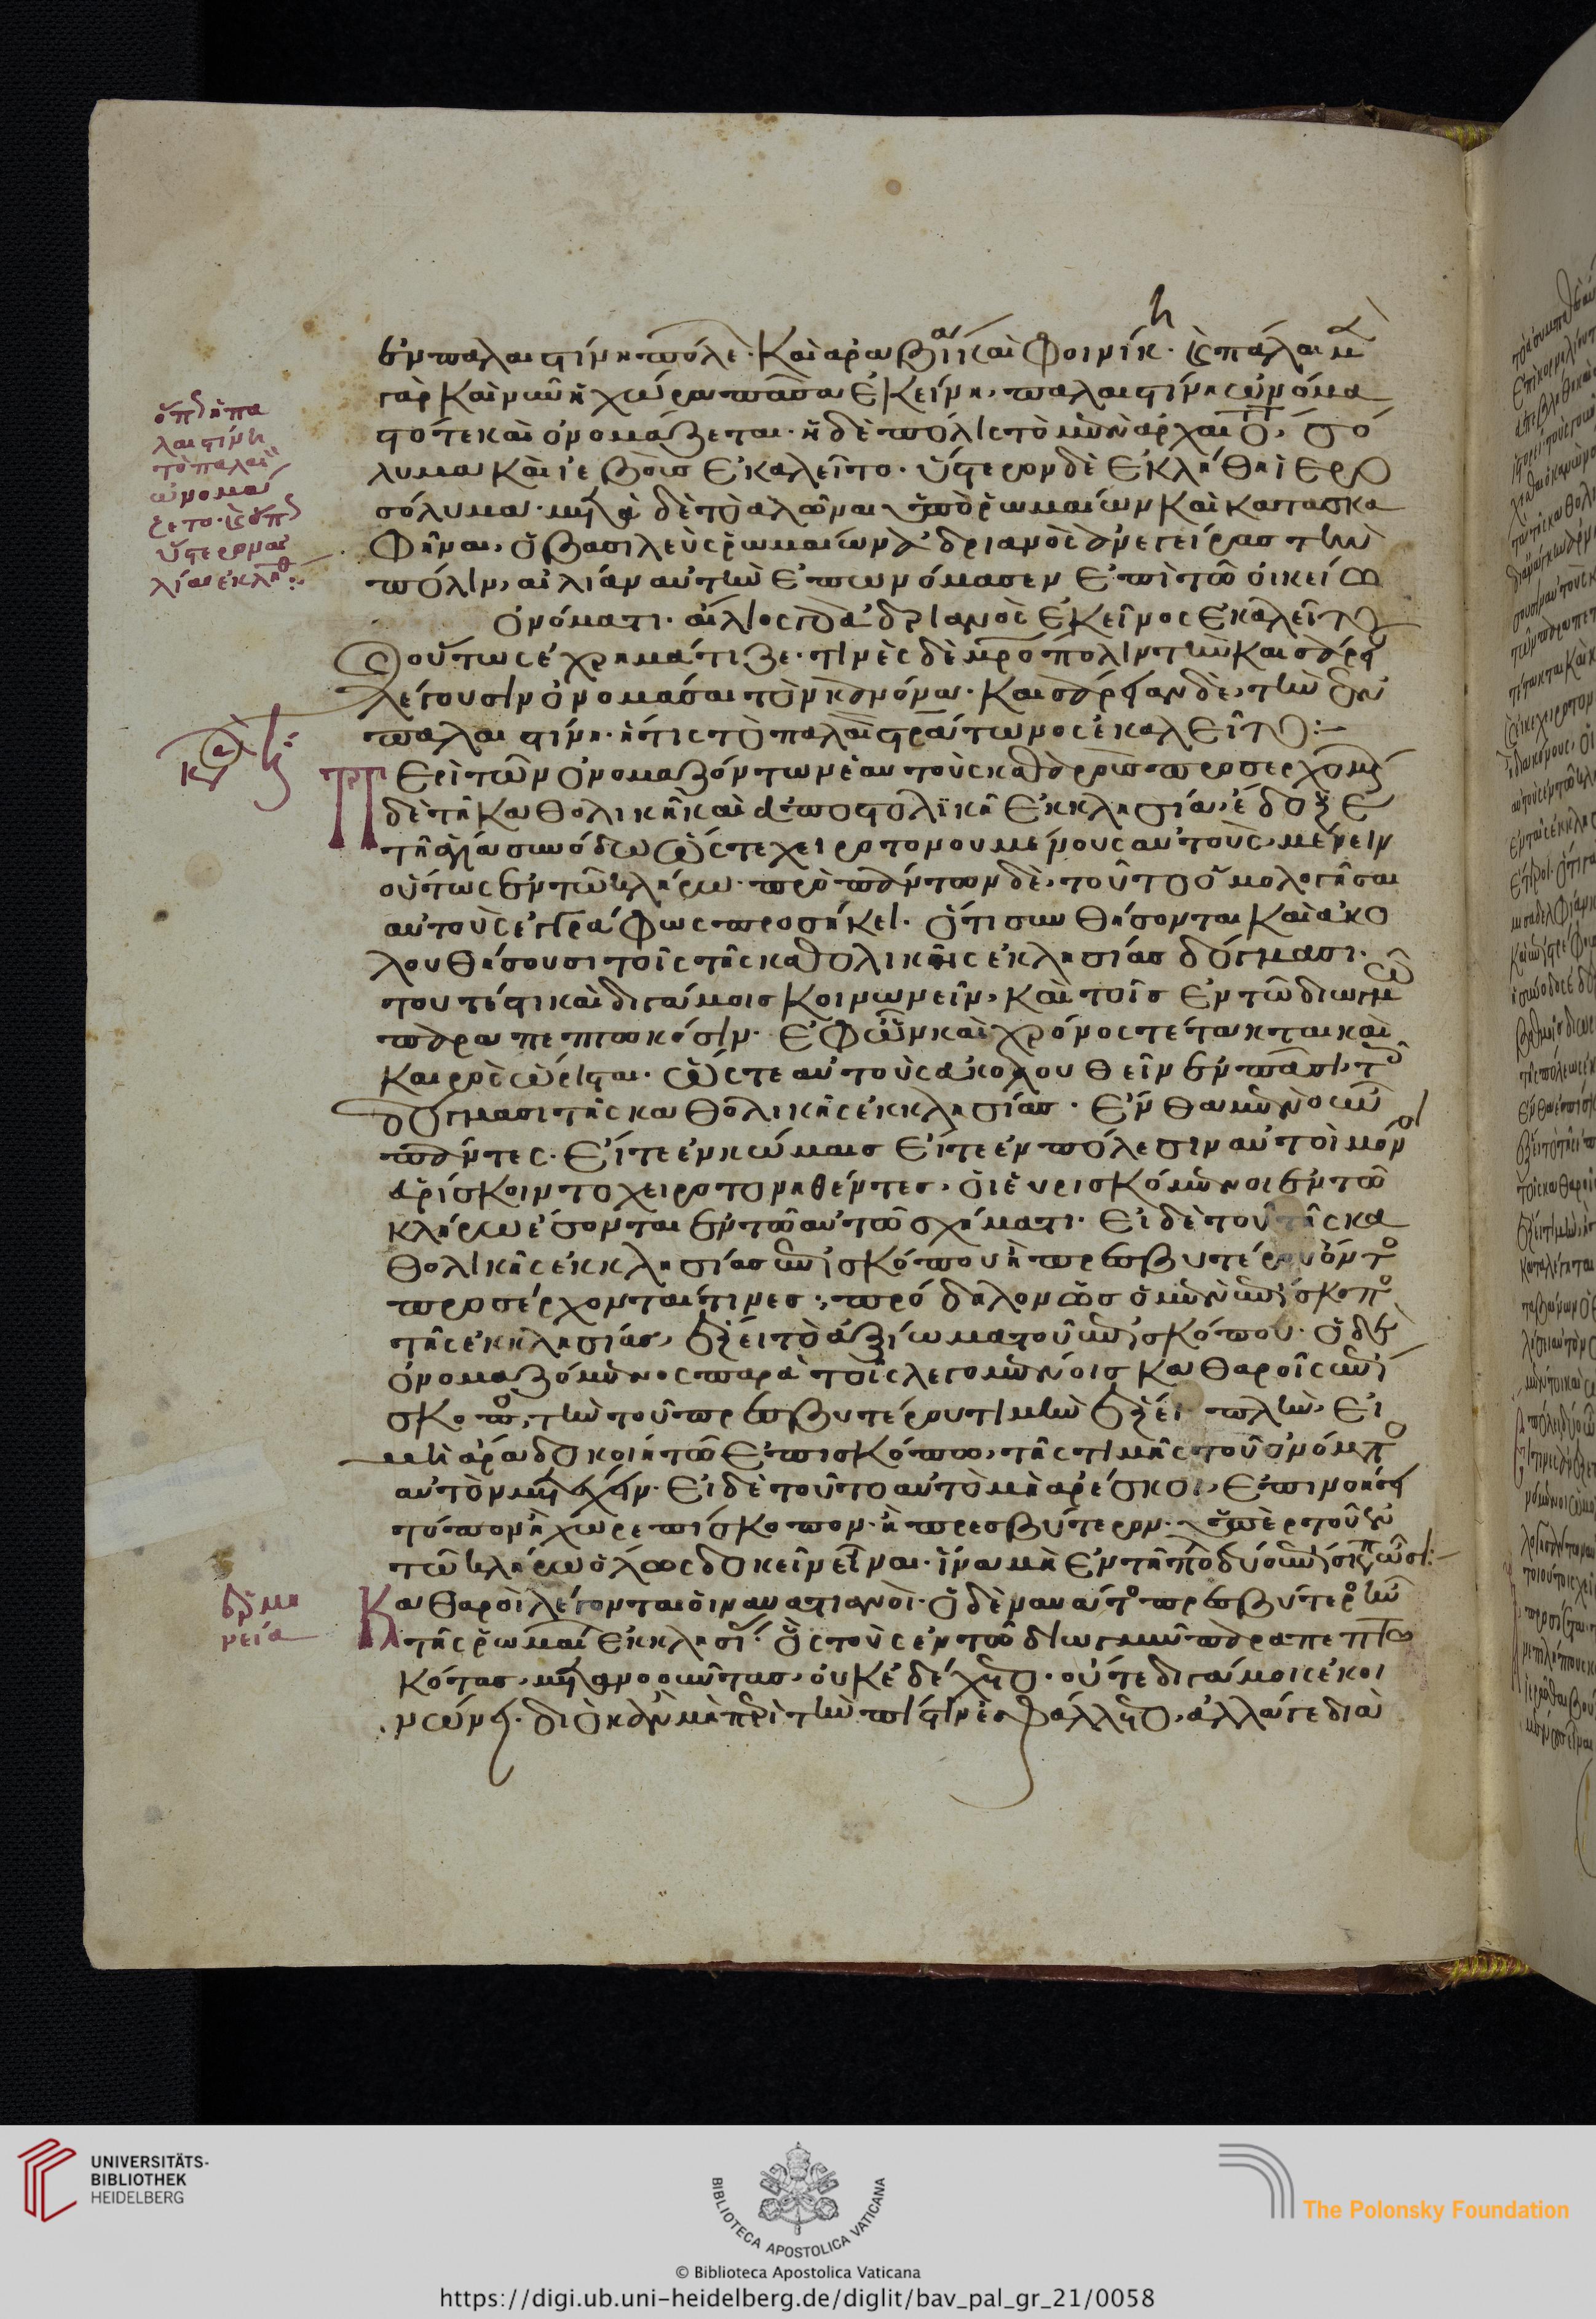 ἐν παλαιστίνη πόλε· καὶ ἀραβία καὶ φοινίκη· καὶ πάλαι μὲν
γὰρ καὶ νῦν ἡ χώρα πᾶσα ἐκείνη, παλαιστίνη ὠνόμα
στό τε καὶ ὀνομάζεται· ἡ δὲ πόλις τὸ μὲν ἀρχαῖον, σό
λυμα καὶ ἰεβοὺς ἐκαλεῖτο· ὕστερον δὲ ἐκλήθη ἱερο
σόλυμα· μετὰ δὲ τὸ ἁλῶναι ὑπὸ ῥωμαίων καὶ κατασκα
φῆναι, ὁ βασιλεὺς ῥωμαίων ἀδριανὸς ἀνεγείρας τὴν
πόλιν, αἰλίαν αὐτὴν ἐπωνόμασεν ἐπὶ τῶ οἰκείω
ὀνόματι· αἴλιος γὰρ ἀδριανὸς ἐκεῖνος ἐκαλεῖτο
οὕτως ἐχρημάτιζε· τινὲς δὲ μητρόπολιν τὴν καισάρειαν
λέγουσιν ὀνομάσαι τὸν κανόνα· καισάρειαν δὲ, τὴν ἐν
παλαιστίνη· ἥτις τὸ παλαιὸν στράτωνος ἐκαλεῖτο:
Περὶ τῶν ὀνομαζόντων ἑαυτοὺς καθαροὺς προσερχομένων
δὲ τῆ καθολικῆ καὶ ἀποστολικῆ ἐκκλησία, ἔδοξε
τῆ ἁγία συνόδω ὥστε χειροτονουμένους αὐτοὺς, μένειν
οὕτως ἐν τῶ κλήρω· πρὸ πάντων δὲ, τοῦτο ὁμολογῆσαι
αὐτοὺς ἐγγράφως προσήκει· ὅτι συνθήσονται καὶ ἀκο
λουθήσουσι τοῖς τῆς καθολικῆς ἐκλησίας δόγμασι·
τουτέστι καὶ διγάμοις κοινωνεῖν, καὶ τοῖς ἐν τῶ διωγμῶ
παραπεπτωκόσιν· ἐφ' ὧν καὶ χρόνος τέτακται καὶ
καιρὸς ὥρισται· ὥστε αὐτοὺς ἀκολουθεῖν ἐν πᾶσι, τοῖς
δόγμασι τῆς καθολικῆς ἐκκλησίας· ἔνθα μὲν οὖν
πάντες· εἴτε ἐν κώμαις εἴτε ἐν πόλεσιν αὐτοὶ μόνοι
εὑρίσκοιντο χειροτονηθέντες, οἱ εὑρισκόμενοι ἐν τῶ
κλήρω ἔσονται ἐν τῶ αὐτῶ σχήματι· εἰ δὲ τοῦ τῆς κα
θολικῆς ἐκκλησίας ἐπισκόπου ἢ πρεσβυτέρου ὄντος
προσέρχονται τινες, πρόδηλον ὡς ὁ μὲν ἐπίσκοπος
τῆς ἐκκλησίας, ἕξει τὸ ἀξίωμα τοῦ ἐπισκόπου· ὁ δὲ
ὀνομαζόμενος παρὰ τοῖς λεγομένοις καθαροῖς ἐπί
σκοπος, τὴν τοῦ πρεσβυτέρου τιμὴν ἕξει πλὴν, εἰ
μὴ ἄρα δοκοίη τῶ ἐπισκόπω, τῆς τιμῆς τοῦ ὀνόματος
αὐτὸν μετέχειν· εἰ δὲ τοῦτο αὐτὸ μὴ ἀρέσκοι, ἐπινοήσει
τόπον ἢ χωρεπισκόπου· ἢ πρεσβύτερον· ὑπὲρ τοῦ ἐν
τῶ κλήρω ὅλως δοκεῖν εἶναι· ἵνα μὴ ἐν τῆ πόλει δύο ἐπίσκοποι ὦσι:
Καθαροὶ λέγονται οἱ ναυατιανοί· ὁ δὲ ναυάτος πρεσβύτερος ἦν
τῆς ῥωμαίων ἐκκλησίας· ὃς τοὺς ἐν τῶ διωγμῶ παραπεπτω
κότας, μετανοοῦντας, οὐκ ἐδέχετο· οὔτε διγάμοις ἐκοι
νώνει· διὸ κἂν μὴ περὶ τὴν πίστιν ἐσφάλλετο, ἀλλά γε διὰ
ὅπου ἡ πα
λαιστίνη
τὸ παλαιὸν
ὠνομά
ζετο· καὶ ὅπου
ὕστερον αἰ
λία ἐκλήθη:
κανὼν η
ἑρμη
νεία
UNIVERSITÄTS-
BIBLIOTHEK
HEIDELBERG
BIBLIOTECA APOSTOLICA VATICANA
The Polonsky Foundation
© Biblioteca Apostolica Vaticana
https://digi.ub.uni-heidelberg.de/diglit/bav_pal_gr_21/0058